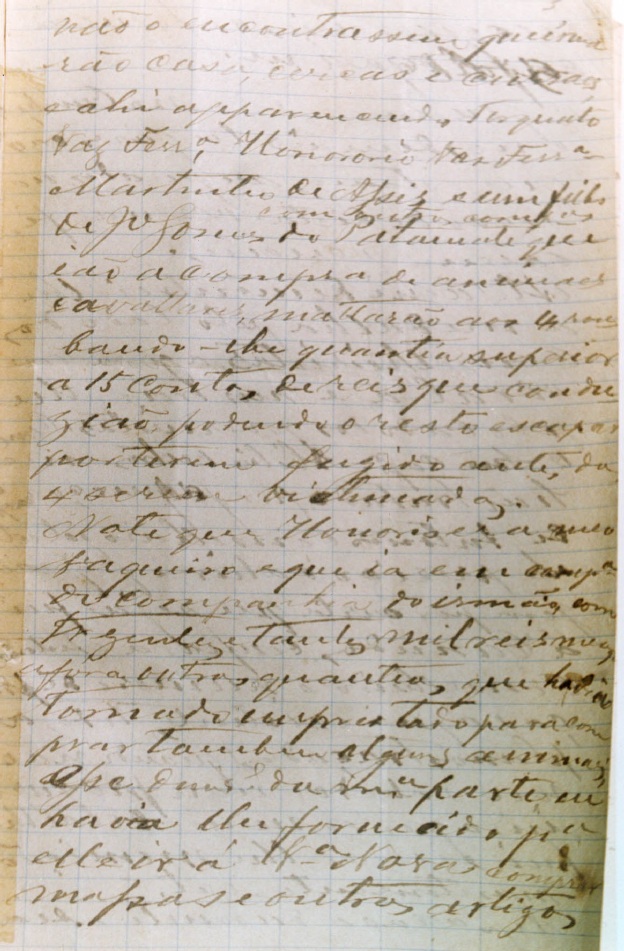 não o encontrassem queima
rão casa, cercas e
e ahi apparecendo, Torquato
Vaz Ferrª, Honorio Vaz Ferrª
Martinho de Assis e um filho
com outros companheiros
de Jº Gomes do Patamuté que
ião á compra de animaes
cavallares, mattarão aos 4 rou
bando-lhe quantia superior
a 15 Contos de reis que condu
zião, podendo o resto escapar
por terem fugido antes da
4 serem victimados.
Note que Honorio era meu
vaqueiro e que ia em
de companhia do irmão com
Trezentos e tantos mil reis meos
fora outras quantias, que havia
tomado emprestado para com
prar tambem alguns animaes
e esse dinrº da mª parte eu
havia lhe fornecido pª
elle ir á Vª Nova comprar
massas e outros artigos